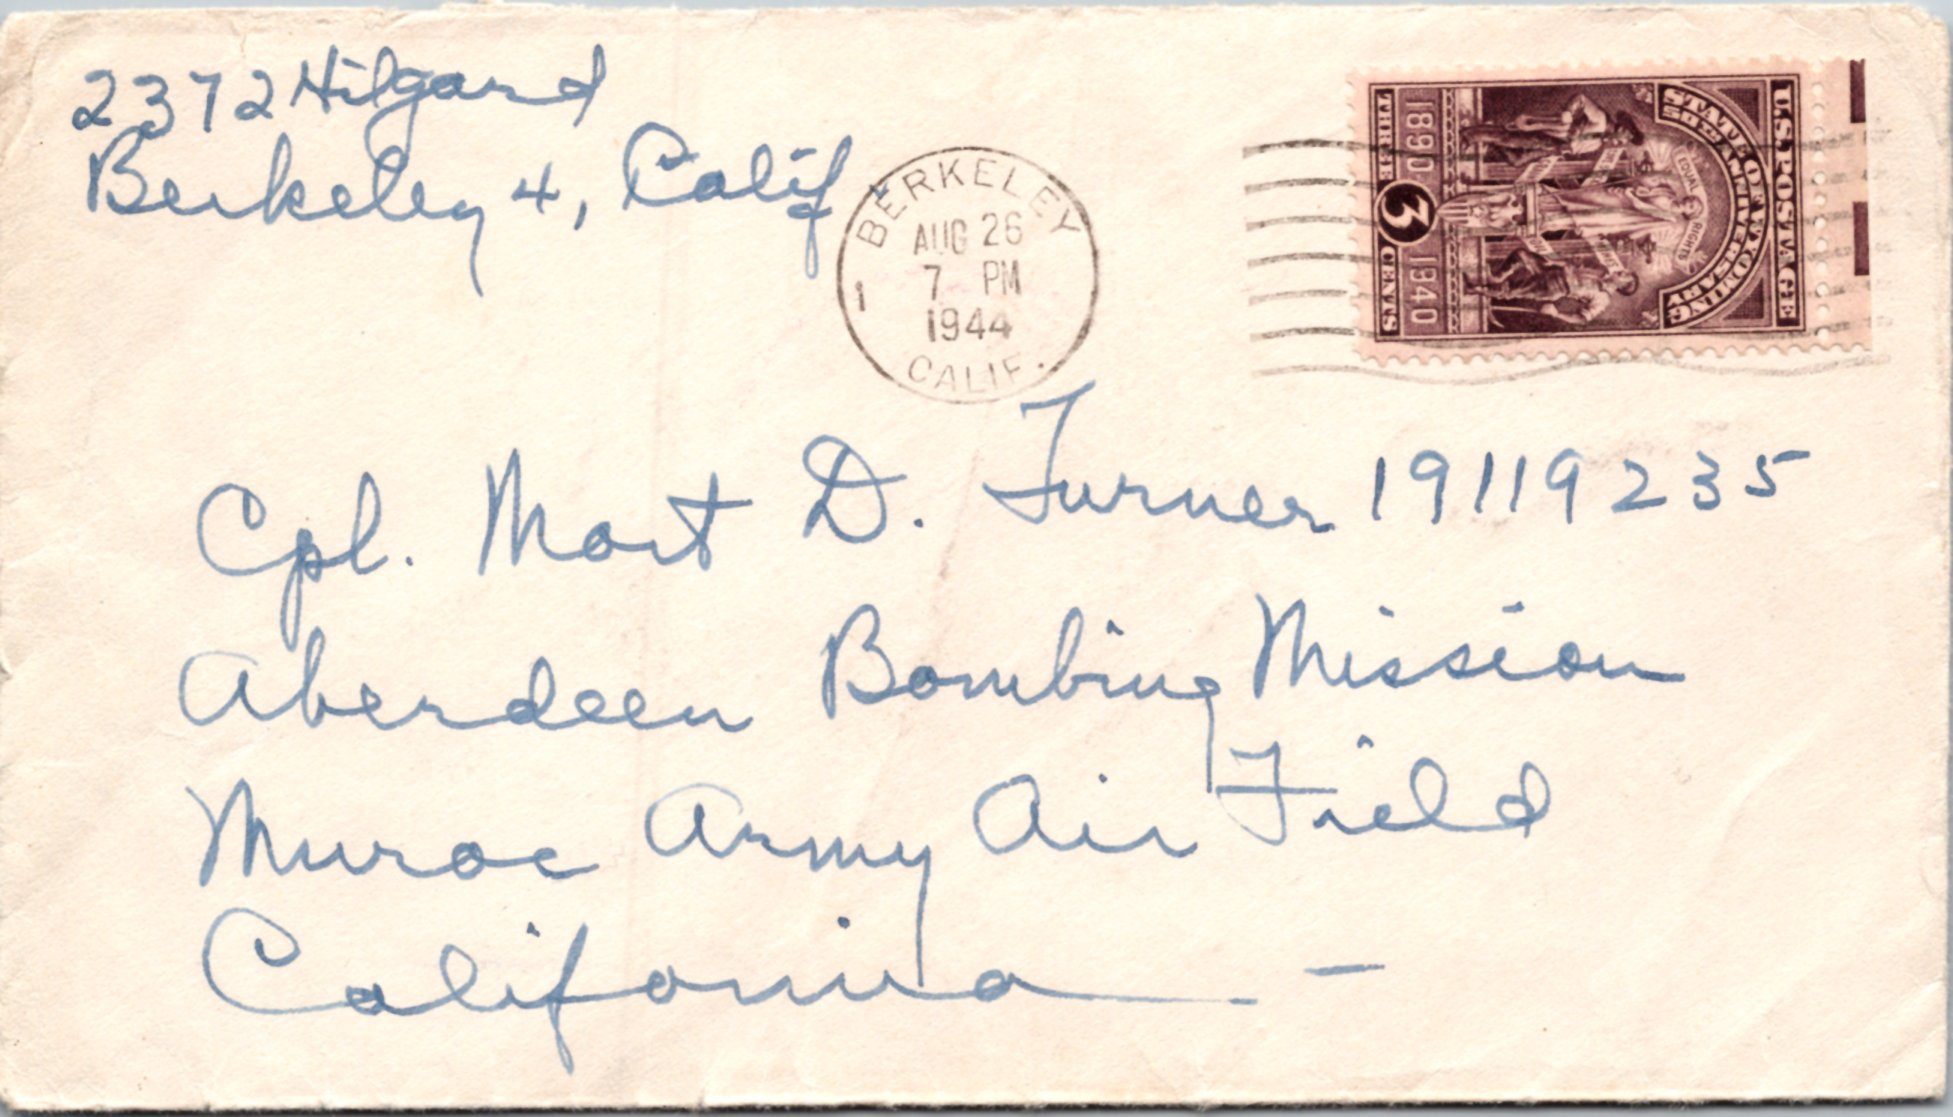 2372 Hilgard
Berkeley 4, Calif
BERKELEY
AUG 26
7 PM
1
1944
CALIF.
U.S. POSTAGE
STATE OF WYOMING
50TH ANNIVERSARY
EQUAL RIGHTS
1890 1940
THREE 3 CENTS
Cpl. Mort D. Turner 19119235
Aberdeen Bombing Mission
Muroc Army Air Field
California —